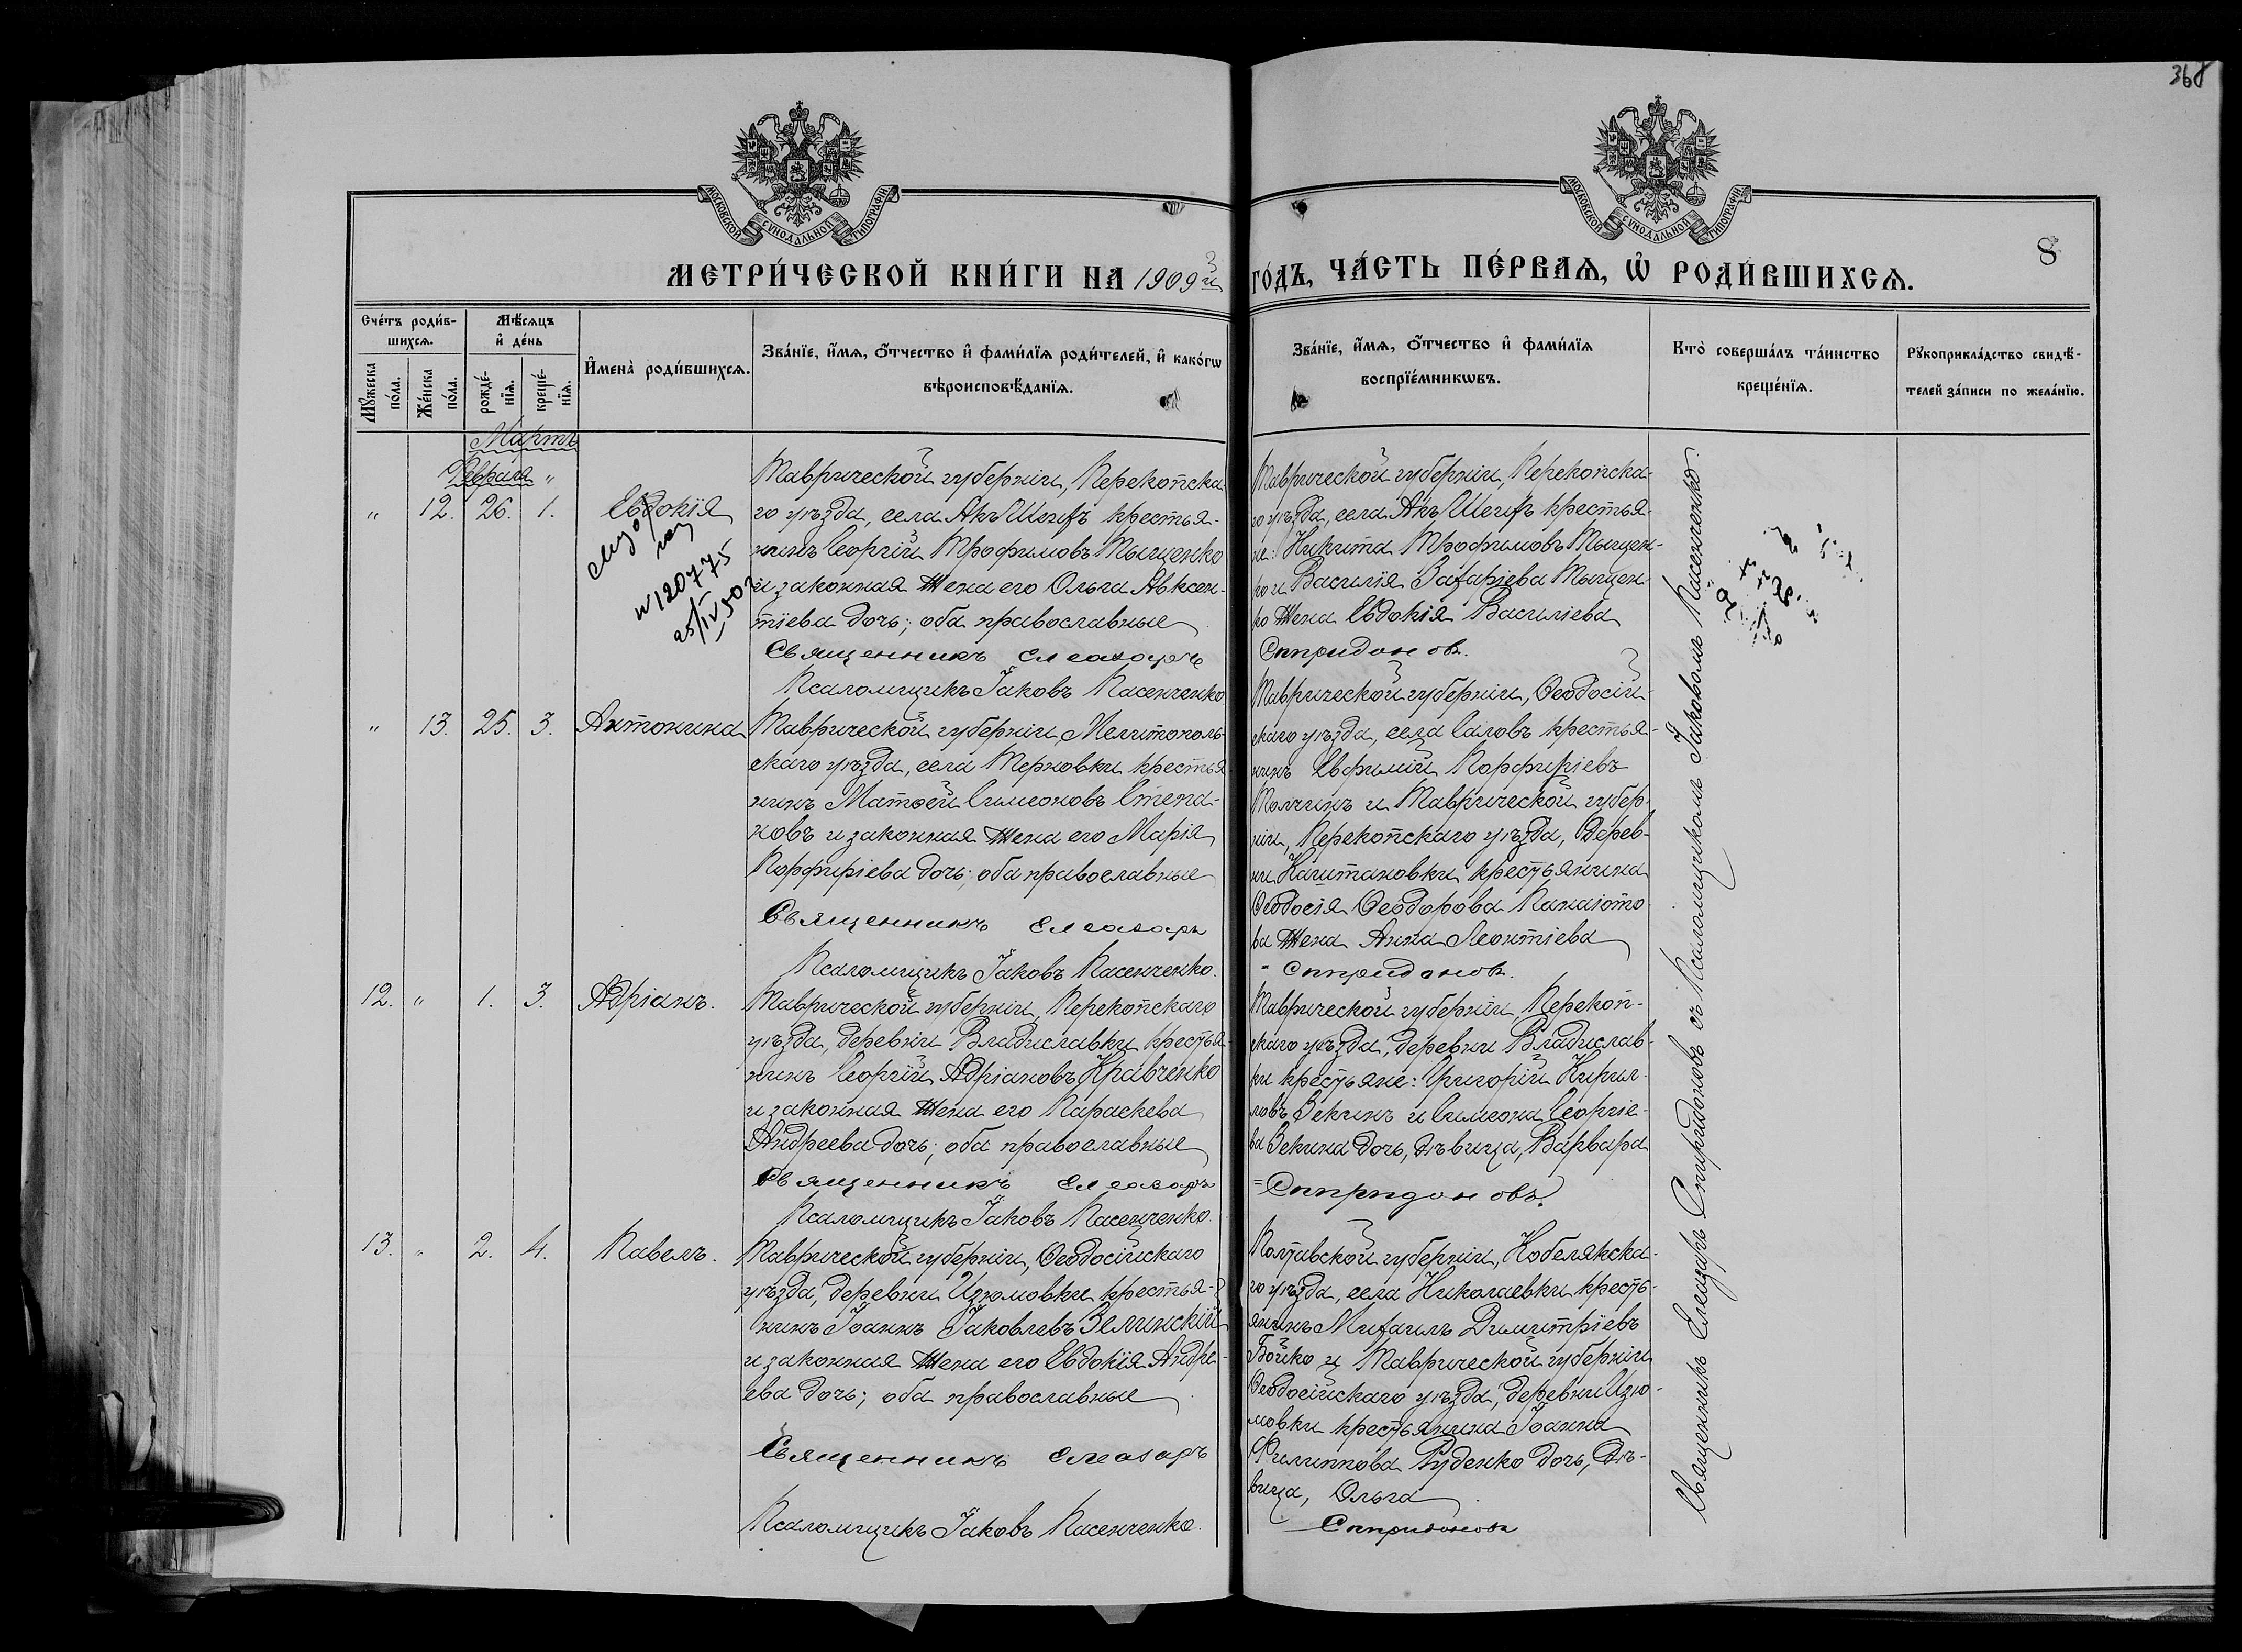 368
МОСКОВСКОЙ СУНОДАЛЬНОЙ ТИПОГРАФІИ
МОСКОВСКОЙ СУНОДАЛЬНОЙ ТИПОГРАФІИ
8
МЕТРИ́ЧЕСКОЙ КНИ́ГИ НА 1909й
ГО́ДЪ, ЧА́СТЬ ПЕ́РВАѦ, Ѡ҆ РОДИ́ВШИХСѦ.
Сче́тъ роди́в-
шихсѧ.
Мꙋ́жеска по́ла.
Же́нска по́ла.
Мѣ́сѧцъ
и҆ де́нь
рожде́-
нїѧ.
креще́-
нїѧ.
И҆мена̀ роди́вшихсѧ.
Зва́нїе, и҆́мѧ, ѻ҆́тчество и҆ фами́лїѧ роди́телей, и҆ како́гѡ
вѣроисповѣ́данїѧ.
Зва́нїе, и҆́мѧ, ѻ҆́тчество и҆ фами́лїѧ
воспрїе́мникѡвъ.
Кто̀ соверша́лъ та́инство
креще́нїѧ.
Рꙋкоприкла́дство свидѣ́-
телей за́писи по жела́нїю.
Мартъ
Февраля "
" 12. 26. 1. Евдокія
№120775
25/IV 50г
Таврической губерніи, Перекопска-
го уѣзда, села Акъ Шеихъ крестья-
нинъ Георгій Трофимовъ Тыщенко
и законная жена его Ольга Авксен-
тіева дочь; оба православные
Священникъ Елеазаръ
Псаломщикъ Іаковъ Пасенченко
Таврической губерніи, Перекопска-
го уѣзда, села Акъ Шеихъ крестья-
не: Никита Трофимовъ Тыщен-
ко и Василія Захаріева Тыщен-
ко жена Евдокія Василіева
Спиридоновъ.
" 13. 25. 3. Антонина
Таврической губерніи, Мелитополь-
скаго уѣзда, села Терновки крестья-
нинъ Матѳей Симеоновъ Степа-
новъ и законная жена его Марія
Порфиріева дочь; оба православные
Священникъ Елеазаръ
Псаломщикъ Іаковъ Пасенченко.
Таврической губерніи, Ѳеодосій-
скаго уѣзда, села Саловъ крестья-
нинъ Евфимій Порфиріевъ
Толчинъ и Таврической губер-
ніи, Перекопскаго уѣзда, дерев-
ни крестьянина
Ѳеодосія Ѳеодорова Панаіото-
ва жена Анна Леонтіева
Спиридоновъ.
12. " 1. 3. Адріанъ.
Таврической губерніи, Перекопскаго
уѣзда, деревни Владиславки крестья-
нинъ Георгій Адріановъ Кравченко
и законная жена его Параскева
Андреева дочь; оба православные
Священникъ Елеазаръ
Псаломщикъ Іаковъ Пасенченко.
Таврической губерніи, Перекоп-
скаго уѣзда, деревни Владислав-
ки крестьяне: Григорій Кирил-
ловъ Зекинъ и Симеона Георгіе-
ва Зекина дочь, дѣвица, Варвара
=Спиридоновъ.
13. " 2. 4. Павелъ.
Таврической губерніи, Ѳеодосійскаго
уѣзда, деревни Изюмовки крестья-
нинъ Іоаннъ Іаковлевъ Зелинскій
и законная жена его Евдокія Андре-
ева дочь; оба православные
Священникъ Елеазаръ
Псаломщикъ Іаковъ Пасенченко.
Полтавской губерніи, Кобелякска-
го уѣзда, села Николаевки кресть-
янинъ Михаилъ Димитріевъ
Бойко и Таврической губерніи
Ѳеодосійскаго уѣзда, деревни Изю-
мовки крестьянина Іоанна
Филиппова Руденко дочь, дѣ-
вица, Ольга
Спиридоновъ
Священникъ Елеазаръ Спиридоновъ съ Псаломщикомъ Іаковомъ Пасенченко.